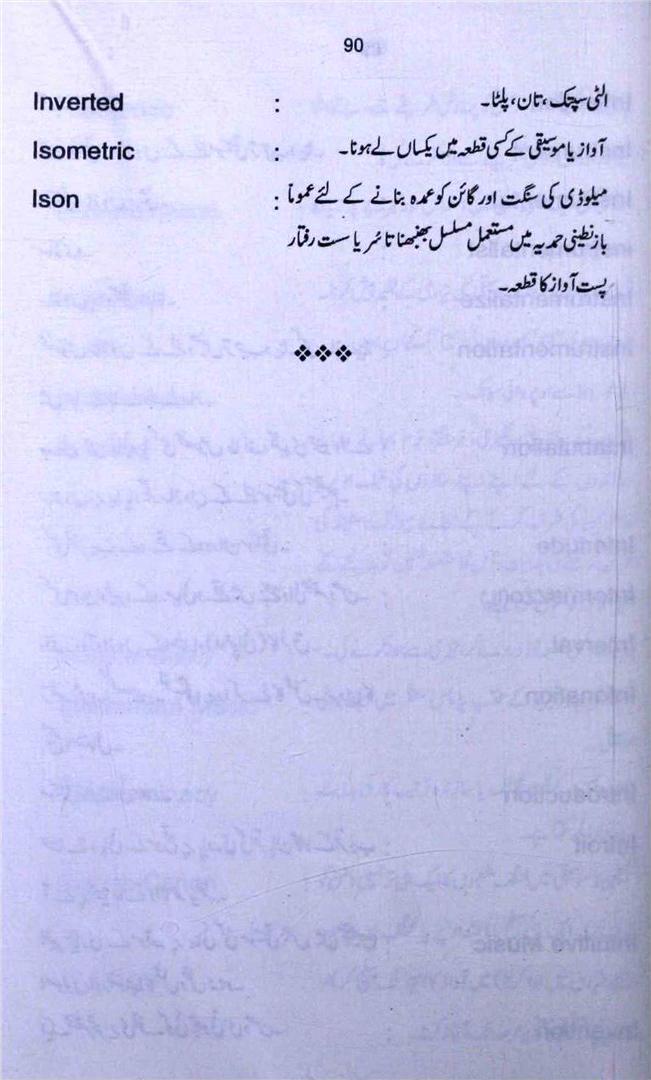 90
Inverted : الٹی سپتک، تان، پلٹا۔
Isometric : آواز یا موسیقی کے کسی قطعہ میں یکساں لے ہونا۔
Ison : میلوڈی کی سنگت اور گائن کو عمدہ بنانے کے لئے عموماً
بازنطینی حمدیہ میں مستعمل مسلسل بھنبھناتا ئر یا ست رفتار
پست آواز کا قطعہ۔